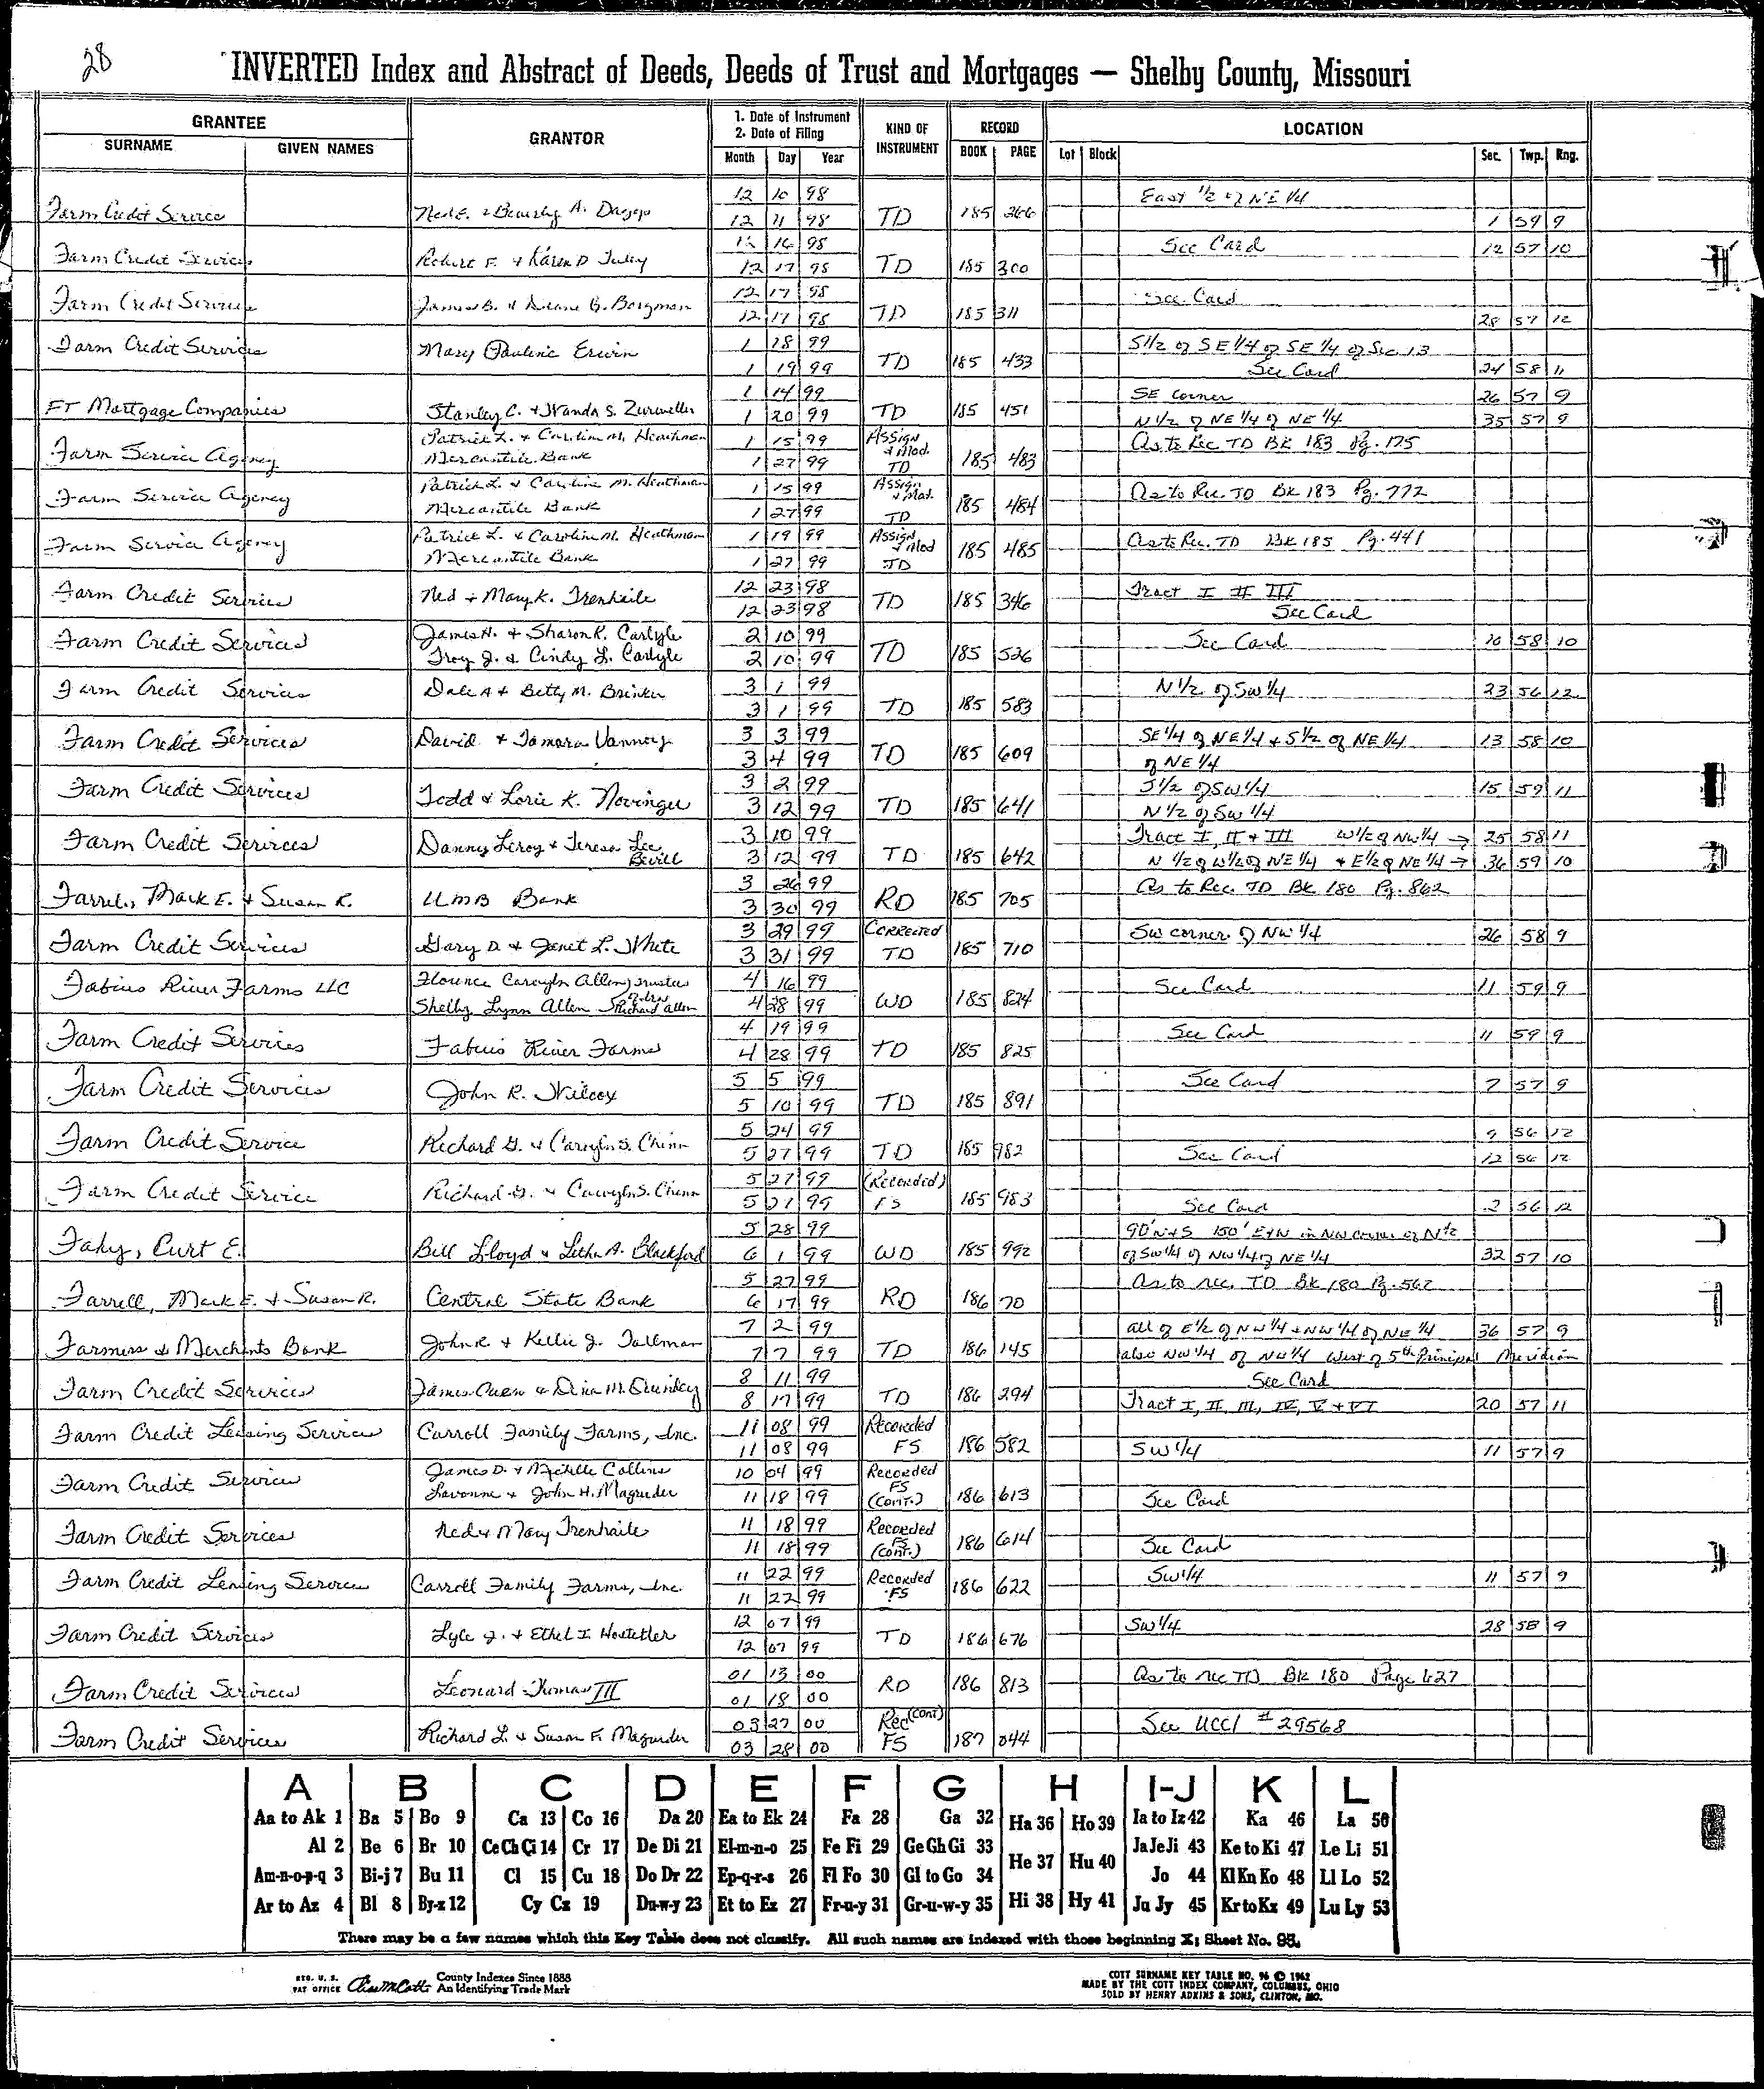 28
INVERTED Index and Abstract of Deeds, Deeds of Trust and Mortgages — Shelby County, Missouri
GRANTEE GRANTOR 1. Date of Instrument 2. Date of Filing KIND OF INSTRUMENT RECORD LOCATION
SURNAME GIVEN NAMES Month Day Year BOOK PAGE Lot Block Sec. Twp. Rng.
12 10 98 East 1/2 of NE 1/4
Farm Credit Service Ned E. & Beverly A. 12 11 98 TD 185 266 1 59 9
12 16 98 See Card 12 57 10
Farm Credit Services Robert F. & Karen D. 12 17 98 TD 185 300
12 17 98 See Card
Farm Credit Services James B. & Diane G. Borgman 12 17 98 TD 185 311 28 57 12
1 18 99 S1/2 of SE 1/4 of SE 1/4 of Sec 13
Farm Credit Services Mary Pauline Erwin 1 19 99 TD 185 433 See Card 24 58 11
1 14 99 SE corner 26 57 9
FT Mortgage Companies Stanley C. & Wanda S. Zurweller 1 20 99 TD 185 451 N 1/2 of NE 1/4 of NE 1/4 35 57 9
Patrick L. & Caroline M. Heathman 1 15 99 Assign & Mod. As to Rec TD BK 183 Pg. 175
Farm Service Agency Mercantile Bank 1 27 99 TD 185 483
Patrick L. & Caroline M. Heathman 1 15 99 Assign & Mod. As to Rec. TD BK 183 Pg. 772
Farm Service Agency Mercantile Bank 1 27 99 TD 185 484
Patrick L. & Caroline M. Heathman 1 19 99 Assign & Mod As to Rec. TD BK 185 Pg. 441
Farm Service Agency Mercantile Bank 1 27 99 TD 185 485
12 23 98 Tract I II III
Farm Credit Services Ned & Mary K. Trenhaile 12 23 98 TD 185 346 See Card
James H. & Sharon R. Carlyle 2 10 99 See Card 10 58 10
Farm Credit Services Troy J. & Cindy L. Carlyle 2 10 99 TD 185 526
3 1 99 N 1/2 of SW 1/4 23 56 12
Farm Credit Services Dale A & Betty M. Brinker 3 1 99 TD 185 583
3 3 99 SE 1/4 of NE 1/4 & S 1/2 of NE 1/4 13 58 10
Farm Credit Services David & Tamara Vanney 3 4 99 TD 185 609 of NE 1/4
3 2 99 S 1/2 of SW 1/4 15 59 11
Farm Credit Services Todd & Lorie K. Novinger 3 12 99 TD 185 641 N 1/2 of SW 1/4
3 10 99 Tract I, II & III W 1/2 of NW 1/4 → 25 58 11
Farm Credit Services Danny Leroy & Teresa Lee Bevill 3 12 99 TD 185 642 N 1/2 of W 1/2 of NE 1/4 & E 1/2 of NE 1/4 → 36 59 10
3 26 99 As to Rec. TD BK 180 Pg. 862
Farrell, Mark E. & Susan R. UMB Bank 3 30 99 RD 185 705
3 29 99 Corrected SW corner of NW 1/4 26 58 9
Farm Credit Services Gary D. & Janet L. White 3 31 99 TD 185 710
Florence Carolyn Allen, Trustee 4 16 99 See Card 11 59 9
Fabius River Farms LLC Shelby Lynn Allen Richard Allen 4 28 99 WD 185 824
4 19 99 See Card 11 59 9
Farm Credit Services Fabius River Farms 4 28 99 TD 185 825
5 5 99 See Card 7 57 9
Farm Credit Services John R. Wilcox 5 10 99 TD 185 891
5 24 99 9 56 12
Farm Credit Service Richard G. & Carolyn S. Chinn 5 27 99 TD 185 982 See Card 12 56 12
5 27 99 (Recorded)
Farm Credit Service Richard G. & Carolyn S. Chinn 5 27 99 FS 185 983 See Card 2 56 12
5 28 99 90' N & S 150' E & N in NW corner of N 1/2
Fahy, Curt E. Bill Lloyd & Letha A. Blackford 6 1 99 WD 185 992 of SW 1/4 of NW 1/4 of NE 1/4 32 57 10
5 27 99 As to rec. TD BK 180 Pg. 562
Farrell, Mark E. & Susan R. Central State Bank 6 17 99 RD 186 70
7 2 99 all of E 1/2 of NW 1/4 & NW 1/4 of NE 1/4 36 57 9
Farmers & Merchants Bank John R & Kellie J. Tallman 7 7 99 TD 186 145 also NW 1/4 of NW 1/4 West of 5th Principal Meridian
8 11 99 See Card
Farm Credit Services James Owen & Dina M. 8 17 99 TD 186 294 Tract I, II, III, IV, V & VI 20 57 11
11 08 99 Recorded
Farm Credit Leasing Services Carroll Family Farms, Inc. 11 08 99 FS 186 582 SW 1/4 11 57 9
James D. & Michelle Collins 10 04 99 Recorded FS
Farm Credit Services Lavonne & John H. Magruder 11 18 99 (Cont.) 186 613 See Card
11 18 99 Recorded FS
Farm Credit Services Ned & Mary Trenhaile 11 18 99 (Cont.) 186 614 See Card
11 22 99 Recorded SW 1/4 11 57 9
Farm Credit Leasing Services Carroll Family Farms, Inc. 11 22 99 FS 186 622
12 07 99 SW 1/4 28 58 9
Farm Credit Services Lyle J. & Ethel I. Hostetler 12 07 99 TD 186 676
01 13 00 As to rec TD BK 180 Page 627
Farm Credit Services Leonard Thomas III 01 18 00 RD 186 813
03 27 00 Rec (Cont) See UCC1 # 29568
Farm Credit Services Richard L. & Susan F. Magruder 03 28 00 FS 187 044
A B C D E F G H I-J K L
Aa to Ak 1 Ba 5 Bo 9 Ca 13 Co 16 Da 20 Ea to Ek 24 Fa 28 Ga 32 Ha 36 Ho 39 Ia to Iz 42 Ka 46 La 50
Al 2 Be 6 Br 10 Ce Ch Ci 14 Cr 17 De Di 21 El-m-n-o 25 Fe Fi 29 Ge Gh Gi 33 He 37 Hu 40 Ja Je Ji 43 Ke to Ki 47 Le Li 51
Am-n-o-p-q 3 Bi-j 7 Bu 11 Cl 15 Cu 18 Do Dr 22 Ep-q-r-s 26 Fl Fo 30 Gl to Go 34 Jo 44 Kl Kn Ko 48 Ll Lo 52
Ar to Az 4 Bl 8 By-z 12 Cy Cz 19 Du-w-y 23 Et to Ez 27 Fr-u-y 31 Gr-u-w-y 35 Hi 38 Hy 41 Ju Jy 45 Kr to Kz 49 Lu Ly 53
There may be a few names which this Key Table does not classify. All such names are indexed with those beginning X; Sheet No. 95.
REG. U. S. PAT OFFICE County Indexes Since 1888 An Identifying Trade Mark
COTT SURNAME KEY TABLE NO. 96 © 1962
MADE BY THE COTT INDEX COMPANY, COLUMBUS, OHIO
SOLD BY HENRY ADKINS & SONS, CLINTON, MO.